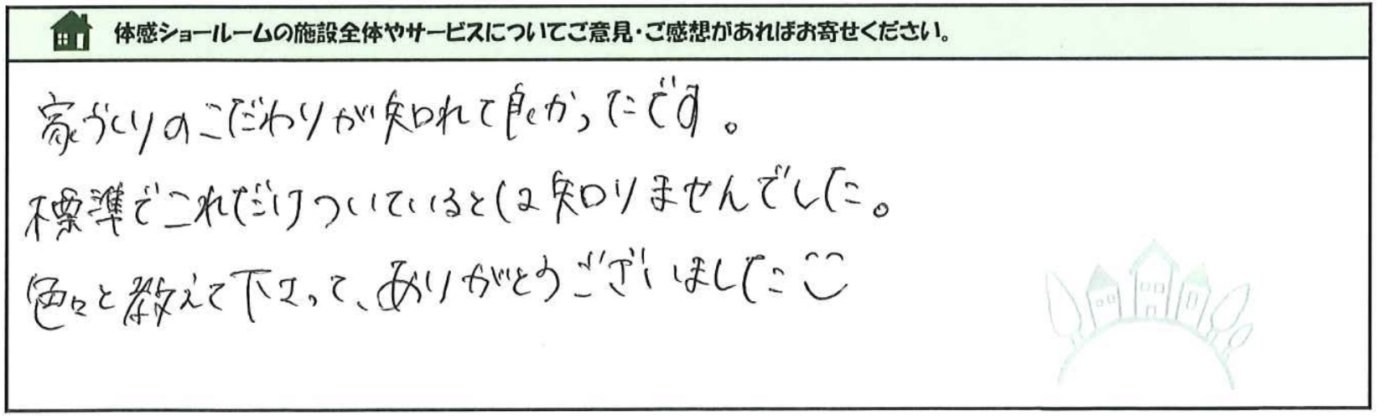 体感ショールームの施設全体やサービスについてご意見・ご感想があればお寄せください。
家づくりのこだわりが知れて良かったです。
標準でこれだけついているとは知りませんでした。
色々と教えて下さって、ありがとうございました